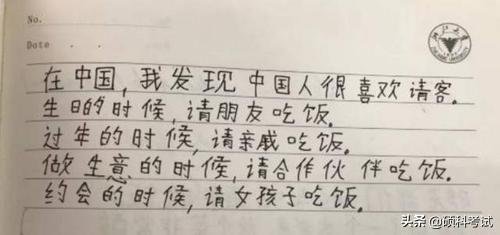 No.
Date
在中国,我发现中国人很喜欢请客.
生日的时候,请朋友吃饭.
过年的时候,请亲戚吃饭.
做生意的时候,请合作伙伴吃饭.
约会的时候,请女孩子吃饭.
头条 @硕科考试